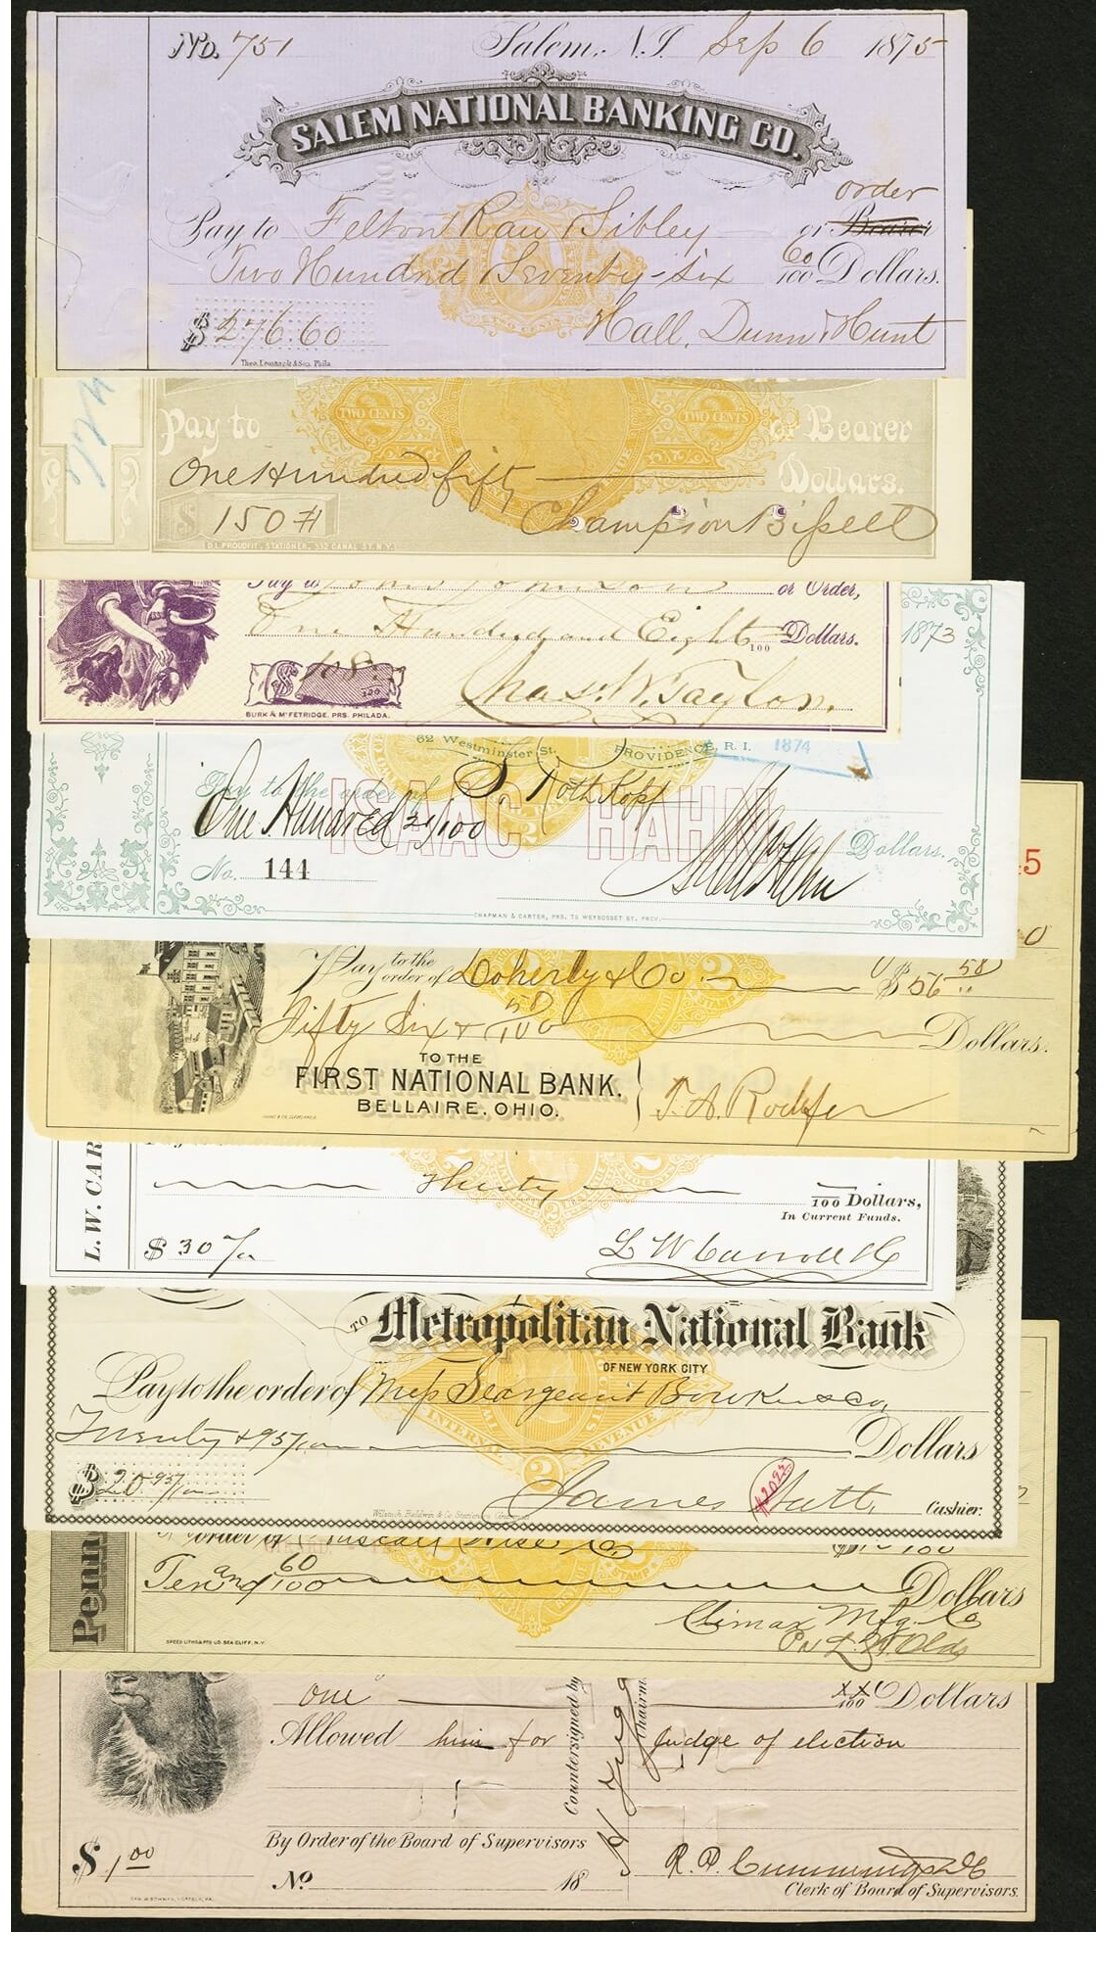 No. 751 Salem, N.J. Sep 6 1875
SALEM NATIONAL BANKING CO.
order
Pay to Felton Rau & Sibley or Bearer
Two Hundred Seventy-six 60/100 Dollars.
$276.60 Hall, Dunn & Hunt
Theo. Leonhardt & Son. Phila.
TWO CENTS TWO CENTS
Pay to or Bearer
One Hundred fifty Dollars.
$ 150 Champion Bissell
D.L. PROUDFIT, STATIONER, 332 CANAL ST. N.Y.
Pay to John Johnson or Order,
One Hundred and Eight /100 Dollars.
1873
$ 108 Chas. W. Taylor.
BURK & McFETRIDGE, PRS. PHILADA.
62 Westminster St. PROVIDENCE, R. I. 1874
Pay to the order of S Rothkopf
ISAAC HAHN
One Hundred 21/100 Dollars.
Isaac Hahn
No. 144
CHAPMAN & CARTER, PRS. 75 WEYBOSSET ST. PROV.
Pay to the order of Doherty & Co. $56 58
Fifty Six & 58/100 Dollars.
TO THE
FIRST NATIONAL BANK.
BELLAIRE, OHIO.
L.W. CAR
Thirty /100 Dollars,
In Current Funds.
$ 30 L W Carroll
TO Metropolitan National Bank
OF NEW YORK CITY
Pay to the order of Mess Seargeant Bowker & Co,
INTERNAL REVENUE
Twenty & 95/100 Dollars
$ 20.95/100 James Hutt, Cashier.
Penn
order of Tuscan Mfg Co
Ten and 60/100 Dollars
Climax Mfg. Co
Per L. W. Olds
SPEED LITHO & PTG CO. SEA CLIFF, N.Y.
One xx/100 Dollars
Allowed him for Judge of election
Countersigned by
Chairm.
By Order of the Board of Supervisors
$ 1.00
No 18
R. P. Cummings
Clerk of Board of Supervisors.